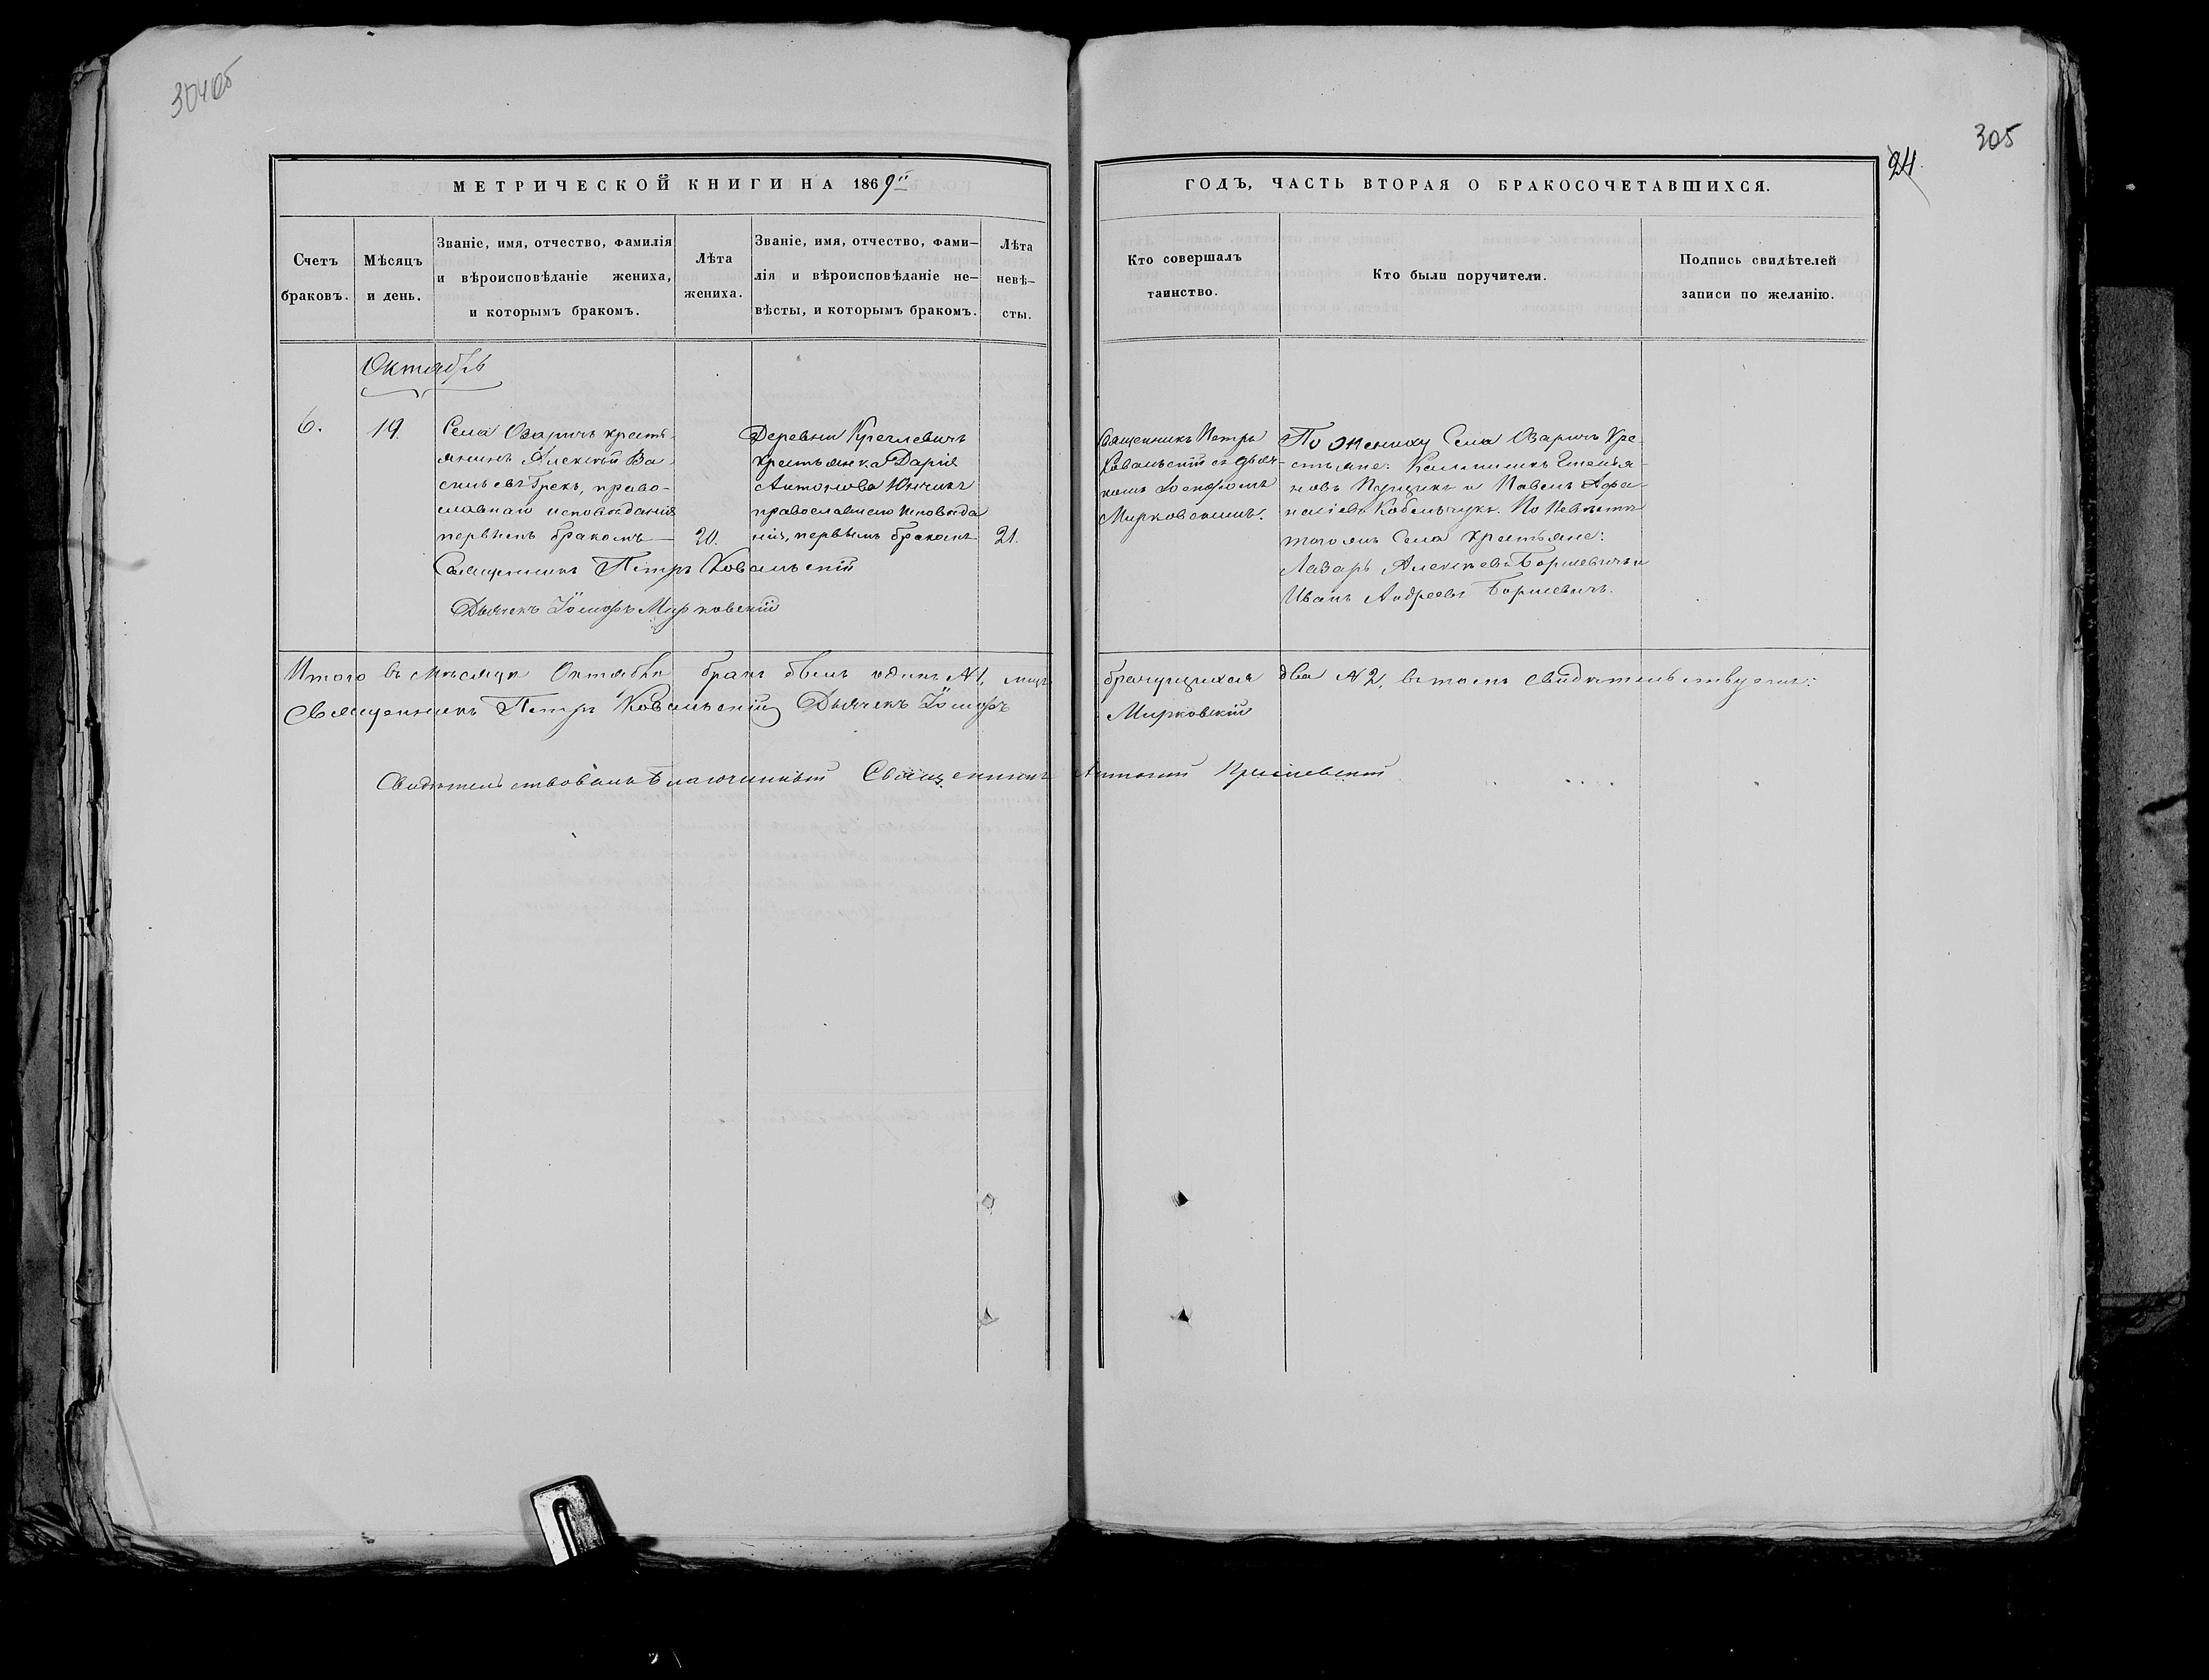 304об
305
24.
МЕТРИЧЕСКОЙ КНИГИ НА 1869й
ГОДЪ, ЧАСТЬ ВТОРАЯ О БРАКОСОЧЕТАВШИХСЯ.
Счетъ
браковъ.
Мѣсяцъ
и день.
Званіе, имя, отчество, фамилія
и вѣроисповѣданіе жениха,
и которымъ бракомъ.
Лѣта
жениха.
Званіе, имя, отчество, фами-
лія и вѣроисповѣданіе не-
вѣсты, и которымъ бракомъ.
Лѣта
невѣ-
сты.
Кто совершалъ
таинство.
Кто были поручители.
Подпись свидѣтелей
записи по желанію.
Октябрь
6.
19.
Села Озаричъ кресть-
янинъ Алексѣй Ва-
сильевъ Грекъ, право-
славнаго исповѣданія
первымъ бракомъ
20.
Деревни
крестьянка Дарія
Антонова
православнаго исповѣда
нія, первымъ бракомъ
21.
Священникъ Петръ
Ковальскій съ дьяч-
комъ Іосифомъ
Мирковскимъ.
По жениху Села Озаричъ Кре-
стьяне: Емелья-
новъ и Павелъ Афа-
насіевъ Кобельчукъ. По Невѣстѣ
того жъ Села Крестьяне:
Лазарь Алексѣевъ Боришевичъ и
Иванъ Андреевъ Боришевичъ.
Священникъ Петръ Ковальскій
Дьячекъ Іосифъ Мирковскій
Итого въ мѣсяцѣ Октябрѣ бракъ былъ одинъ №1, лицъ брачущихся два №2, въ томъ свидѣтельствуемъ:
Священникъ Петръ Ковальскій Дьячекъ Іосифъ Мирковскій
Свидѣтельствовалъ Благочинный Священникъ Антоній